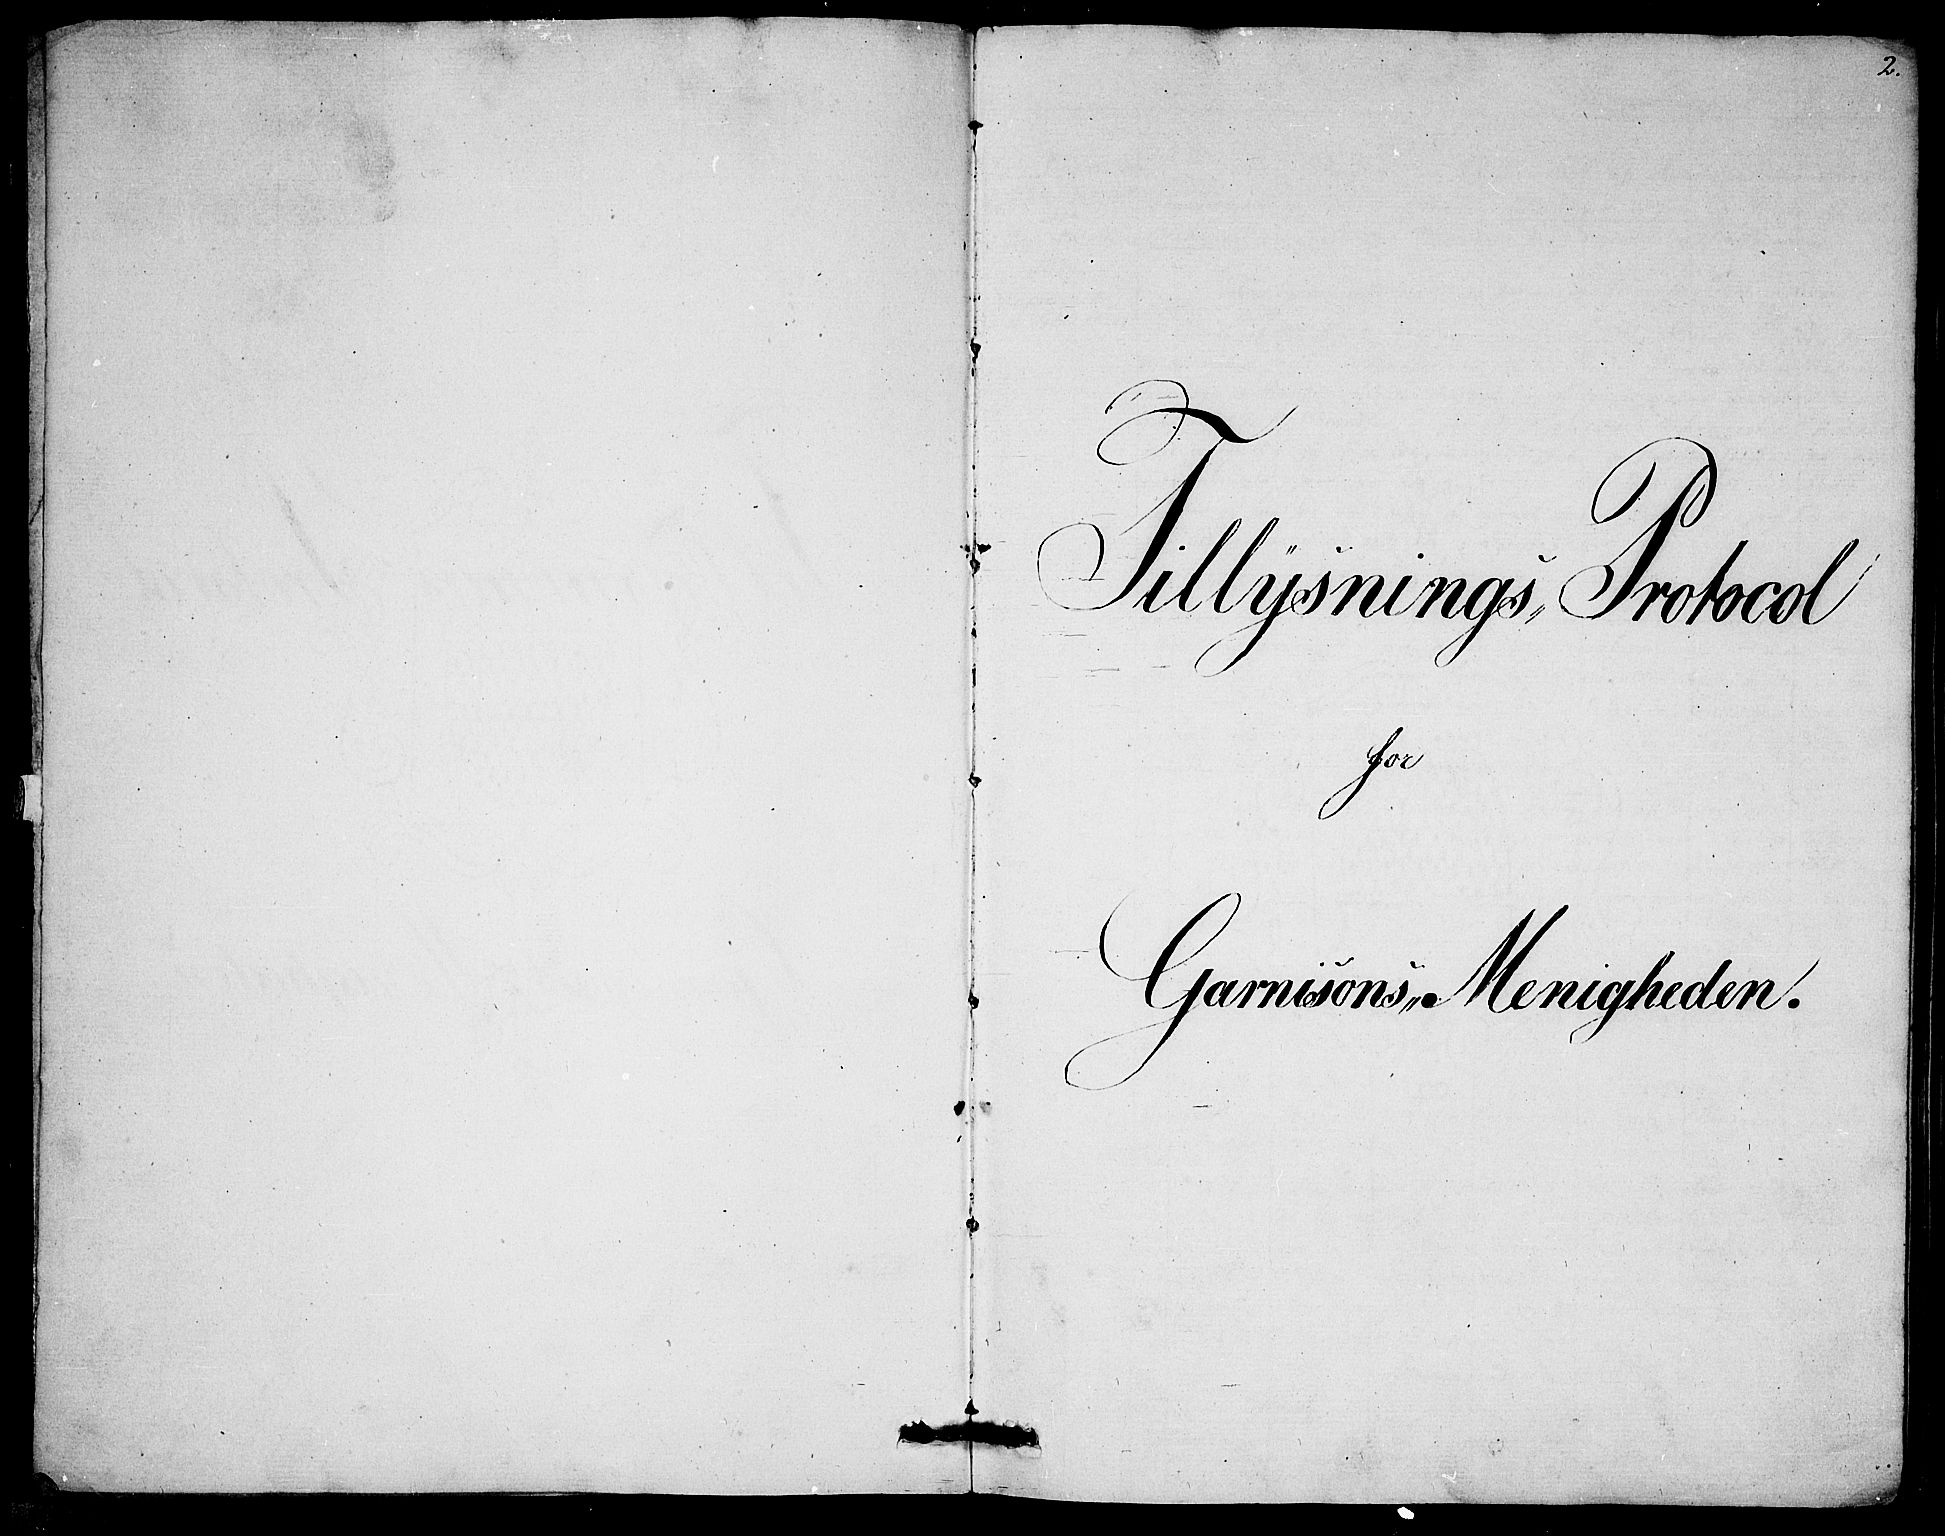 2.
Tillÿsnings„ Protocol
for
Garnisons„ Menigheden.